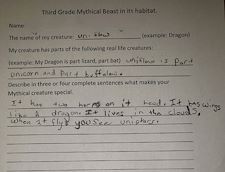 Third Grade Mythical Beast in its habitat.
Name:
The name of my creature: un. (example: Dragon)
My creature has parts of the following real life creatures:
(example: My Dragon is part lizard, part bat) is Part
unicorn and Part buffalow.
Describe in three or four complete sentences what makes your
Mythical creature special.
It has two horns on it head. It has wings
like a dragon. It lives in the clouds.
When it flys you see